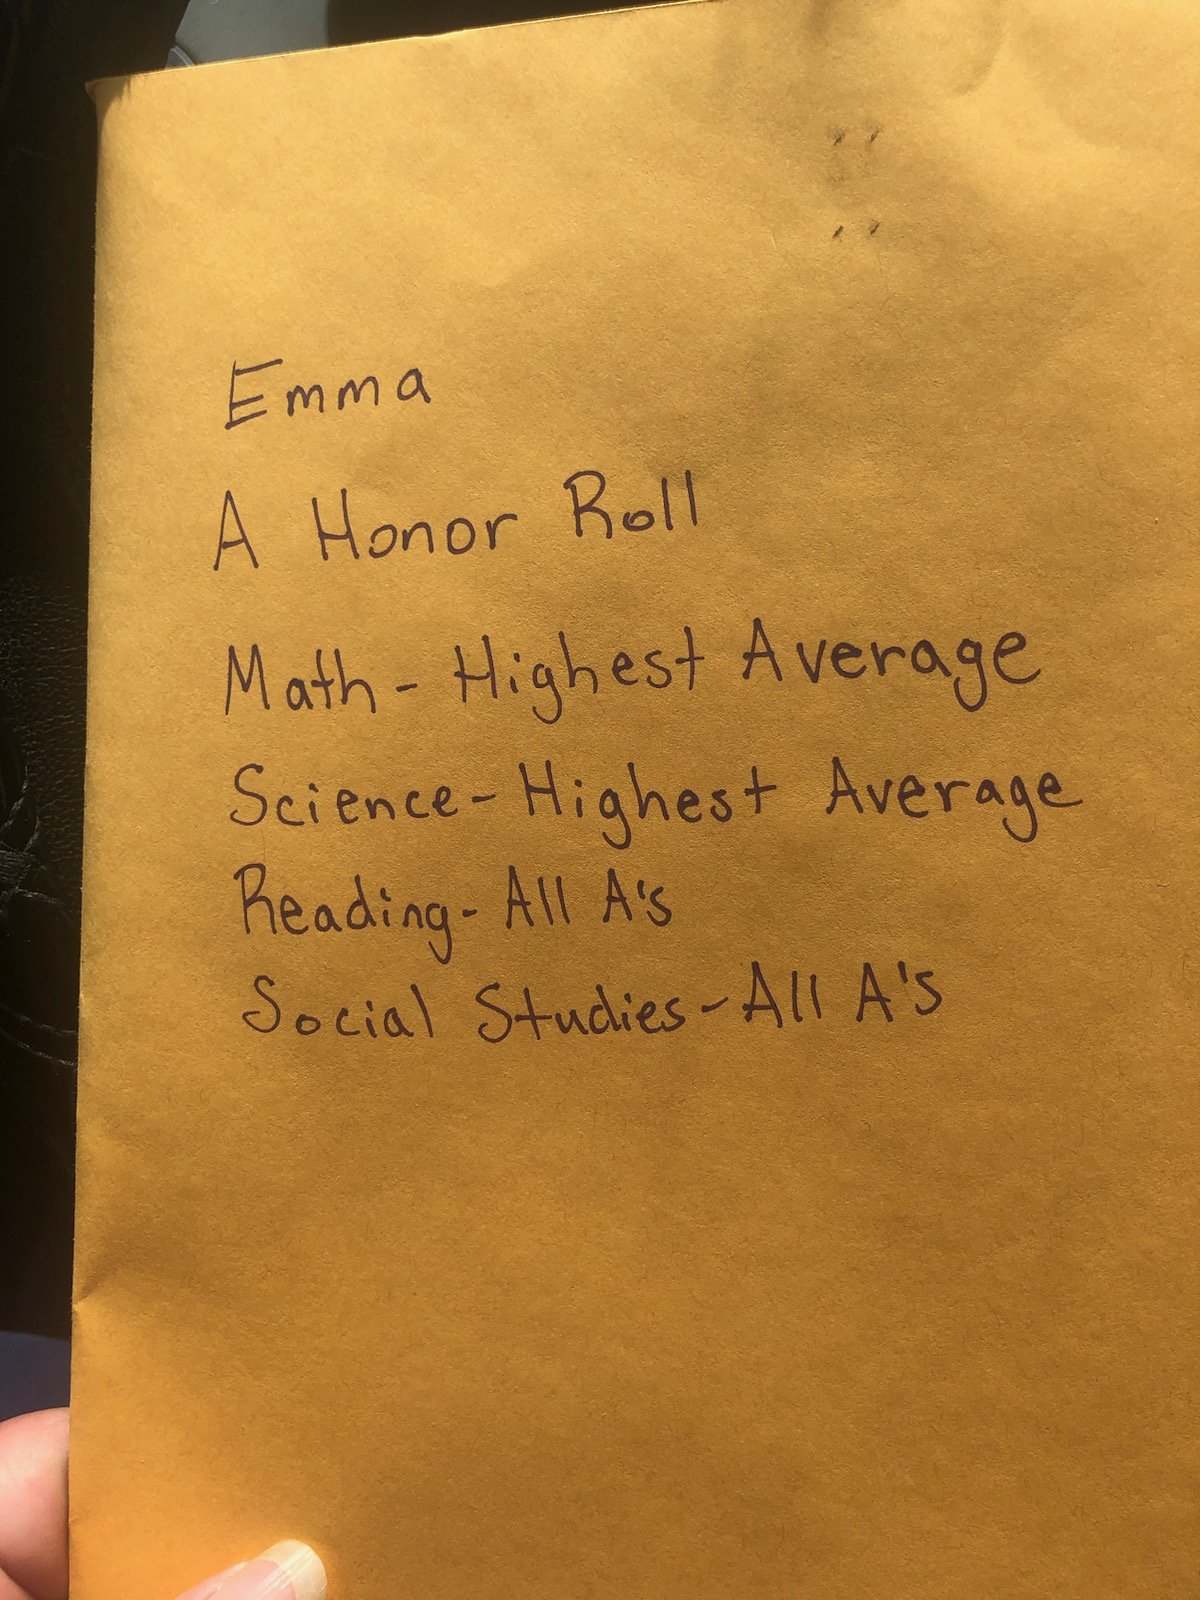 Emma
A Honor Roll
Math - Highest Average
Science - Highest Average
Reading - All A's
Social Studies - All A's